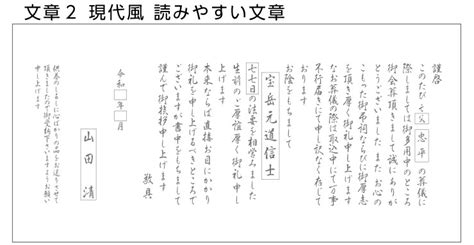 文章2 現代風 読みやすい文章
謹啓
このたびは 父 忠平 の葬儀に
際しましては御多用中のところ
御会葬頂きまして誠にありが
とうございました また お心の
こもった御弔詞ならびに御厚志
を頂き厚く御礼申し上げます
なお葬儀の際は取込中にて万事
不行届きにて申し訳なく存じて
おります
お陰をもちまして
宝岳元道信士
七七日の法要を相営みました
生前のご厚誼厚く御礼申し
上げます
本来ならば直接お目にかかり
御礼を申し上げるべきところで
ございますが書中をもちまして
謹んで御挨拶申し上げます
敬具
令和 年 月
山田 清
供養のしるしに心ばかりの品をお送りさせて
頂きましたので御受納下さいますようお願い
申し上げます